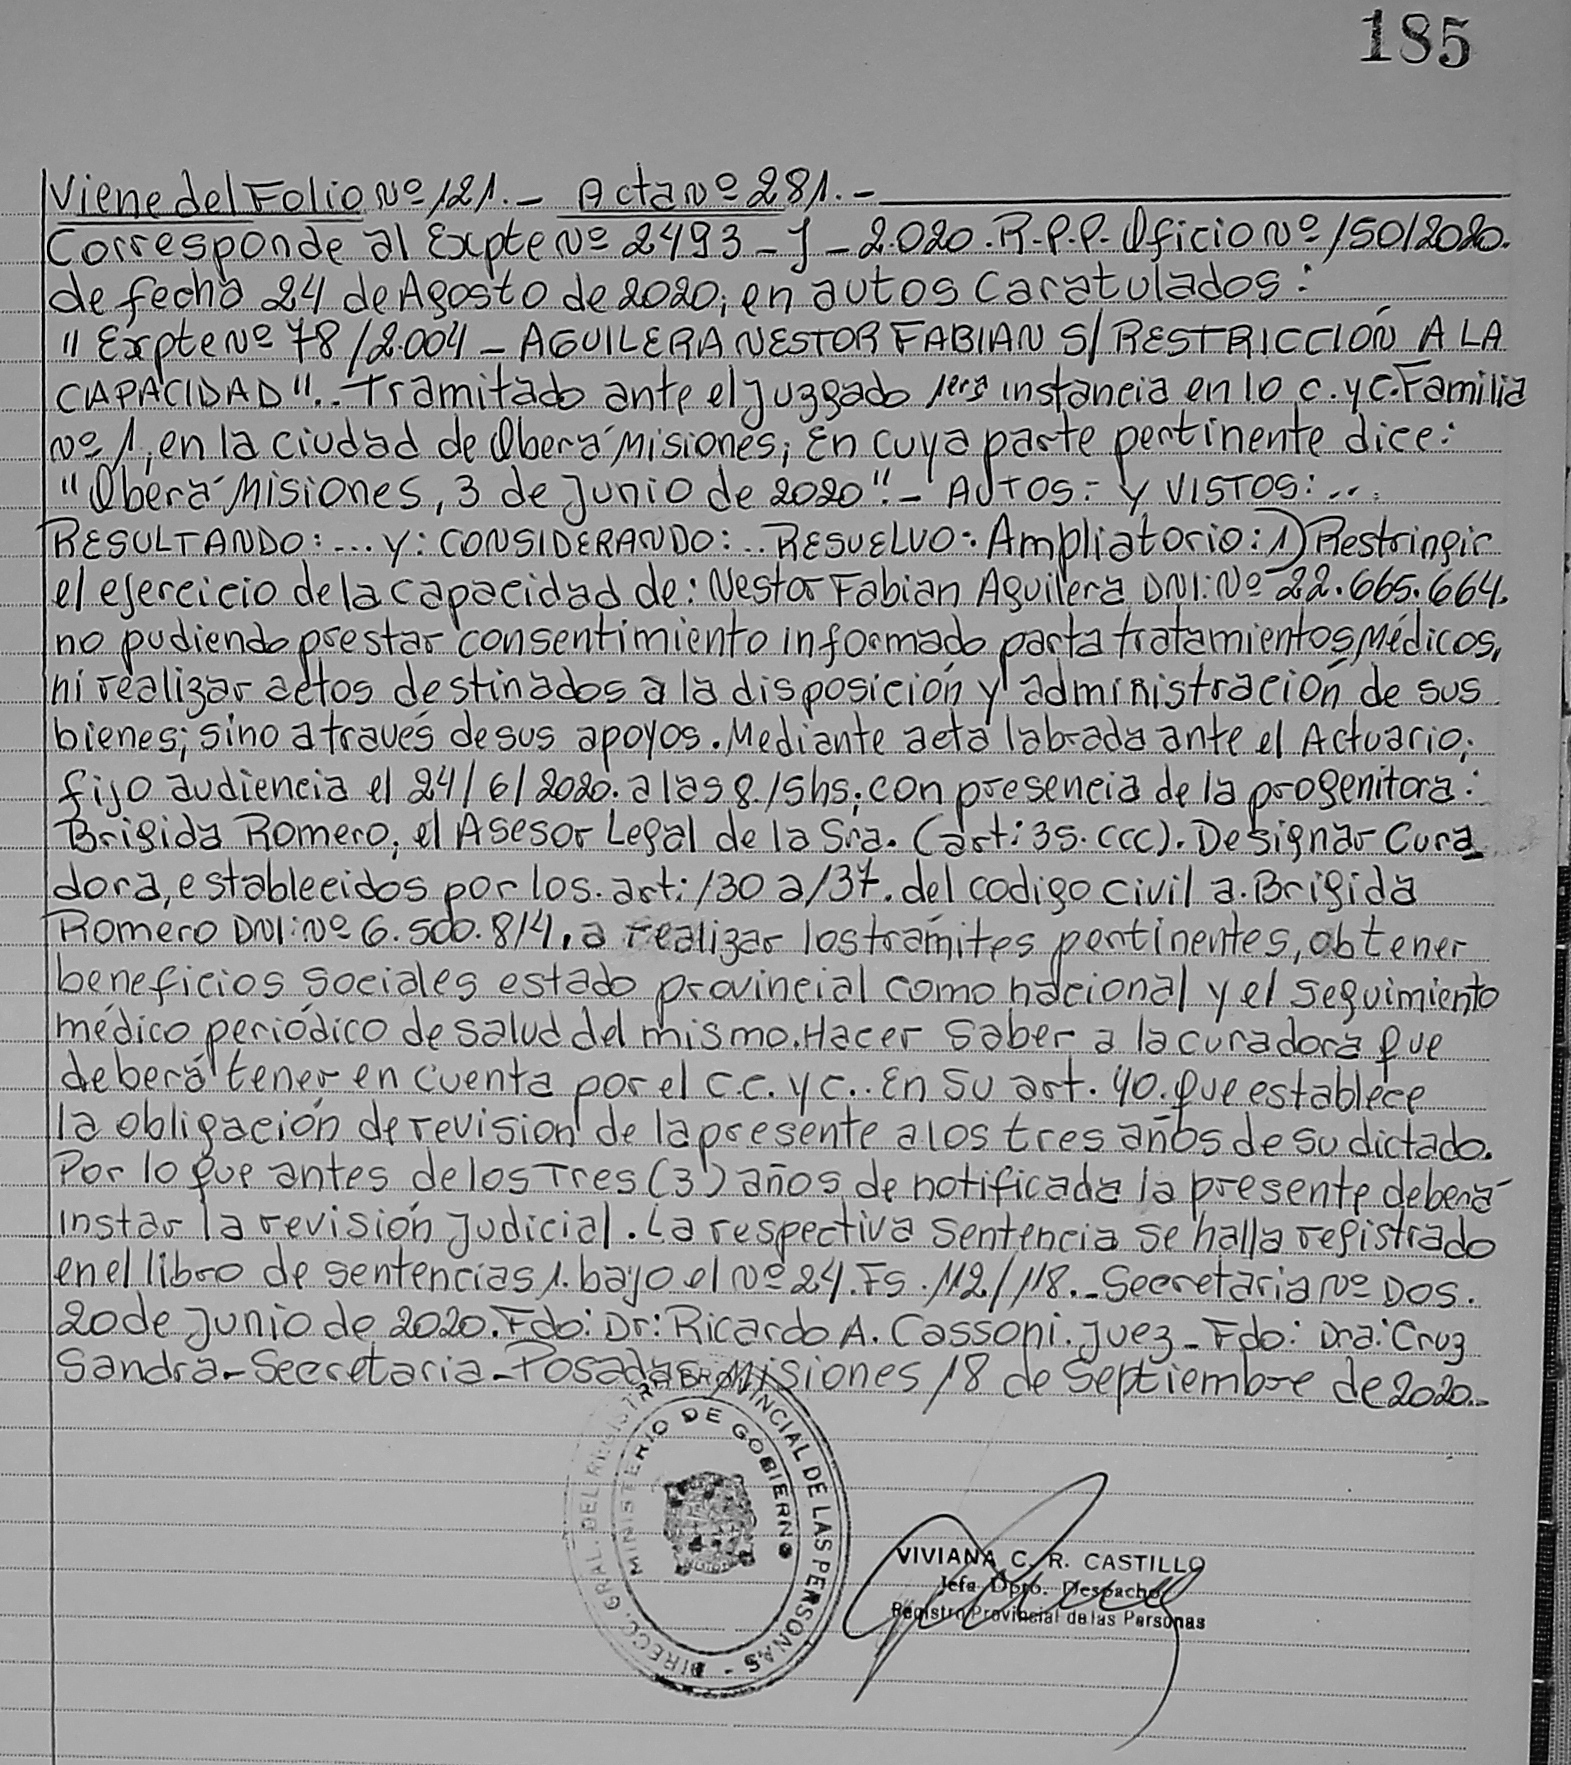 185
Viene del Folio Nº 121.- Acta Nº 281.-
Corresponde al Expte Nº 2493-J-2.020.R.P.P. Oficio Nº 150/2020.
de fecha 24 de Agosto de 2020; en autos caratulados:
"Expte Nº 78/2.004 - AGUILERA NESTOR FABIAN S/ RESTRICCIÓN A LA
CAPACIDAD".. Tramitado ante el Juzgado 1era instancia en lo C. y C. Familia
Nº 1, en la ciudad de Oberá Misiones; En cuya parte pertinente dice:
"Oberá Misiones, 3 de Junio de 2020".- AUTOS:- Y VISTOS:...
RESULTANDO:... Y: CONSIDERANDO:.. RESUELVO: Ampliatorio: 1) Restringir
el ejercicio de la capacidad de: Nestor Fabian Aguilera DNI: Nº 22.665.664.
no pudiendo prestar consentimiento informado parta tratamientos Médicos,
ni realizar actos destinados a la disposición y administración de sus
bienes; sino a través de sus apoyos. Mediante acta labrada ante el Actuario;
fijo audiencia el 24/6/2020. a las 8.15hs; con presencia de la progenitora:
Brigida Romero; el Asesor Legal de la Sra. (art: 35. CCC). Designar Cura
dora, establecidos por los. art: 130 a 137. del codigo civil a. Brigida
Romero DNI: Nº 6.500.814, a realizar los trámites pertinentes, obtener
beneficios sociales estado provincial como nacional y el seguimiento
médico periódico de salud del mismo. Hacer saber a la curadora que
deberá tener en cuenta por el C.C. y C.. En su art. 40. que establece
la obligación de revision de la presente a los tres años de su dictado.
Por lo que antes de los Tres (3) años de notificada la presente deberá
instar la revisión Judicial. La respectiva sentencia se halla registrado
en el libro de sentencias 1. bajo el Nº 24. Fs. 112/118.- Secretaria Nº Dos.
20 de Junio de 2020. Fdo: Dr: Ricardo A. Cassoni. Juez - Fdo: Dra: Cruz
Sandra - Secretaria - Posadas Misiones 18 de Septiembre de 2020.-
DIRECC. GRAL. DEL REGISTRO PROVINCIAL DE LAS PERSONAS -
MINISTERIO DE GOBIERNO
VIVIANA C. R. CASTILLO
Jefa Dpto. Despacho
Registro Provincial de las Personas